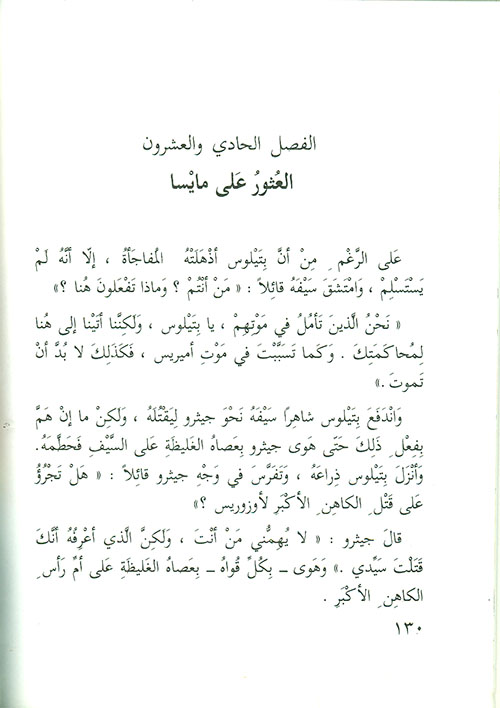 الفصل الحادي والعشرون
العُثورُ عَلى مايْسا
عَلى الرَّغْمِ مِنْ أنَّ بِتَيْلوس أذْهَلَتْهُ المُفاجَأةُ ، إلّا أنَّهُ لَمْ
يَسْتَسْلِمْ ، وَامْتَشَقَ سَيْفَهُ قائِلاً : « مَنْ أنْتُمْ ؟ وَماذا تَفْعَلونَ هُنا ؟»
« نَحْنُ الَّذينَ تَأمُلُ في مَوْتِهِمْ ، يا بِتَيْلوس ، وَلَكِنَّنا أتَيْنا إلى هُنا
لِمُحاكَمَتِكَ . وَكَما تَسَبَّبْتَ في مَوْتِ أميريس ، فَكَذَلِكَ لا بُدَّ أنْ
تَموتَ .»
وَانْدَفَعَ بِتَيْلوس شاهِرًا سَيْفَهُ نَحْوَ جيثرو لِيَقْتُلَهُ ، وَلكِنْ ما إنْ هَمَّ
بِفِعْلِ ذَلِكَ حَتّى هَوى جيثرو بِعَصاهُ الغَليظَةِ عَلى السَّيْفِ فَحَطَّمَهُ.
وَأنْزَلَ بِتَيْلوس ذِراعَهُ ، وَتَفَرَّسَ في وَجْهِ جيثرو قائِلاً : « هَلْ تَجْرُؤُ
عَلى قَتْلِ الكاهِنِ الأكْبَرِ لأوزوريس ؟»
قالَ جيثرو : « لا يُهِمُّني مَنْ أنْتَ ، وَلَكِنَّ الَّذي أعْرِفُهُ أنَّكَ
قَتَلْتَ سَيِّدي .» وَهَوى ـ بِكُلِّ قُواهُ ـ بِعَصاهُ الغَليظَةِ عَلى أمِّ رَأسِ
الكاهِنِ الأكْبَرِ .
١٣٠